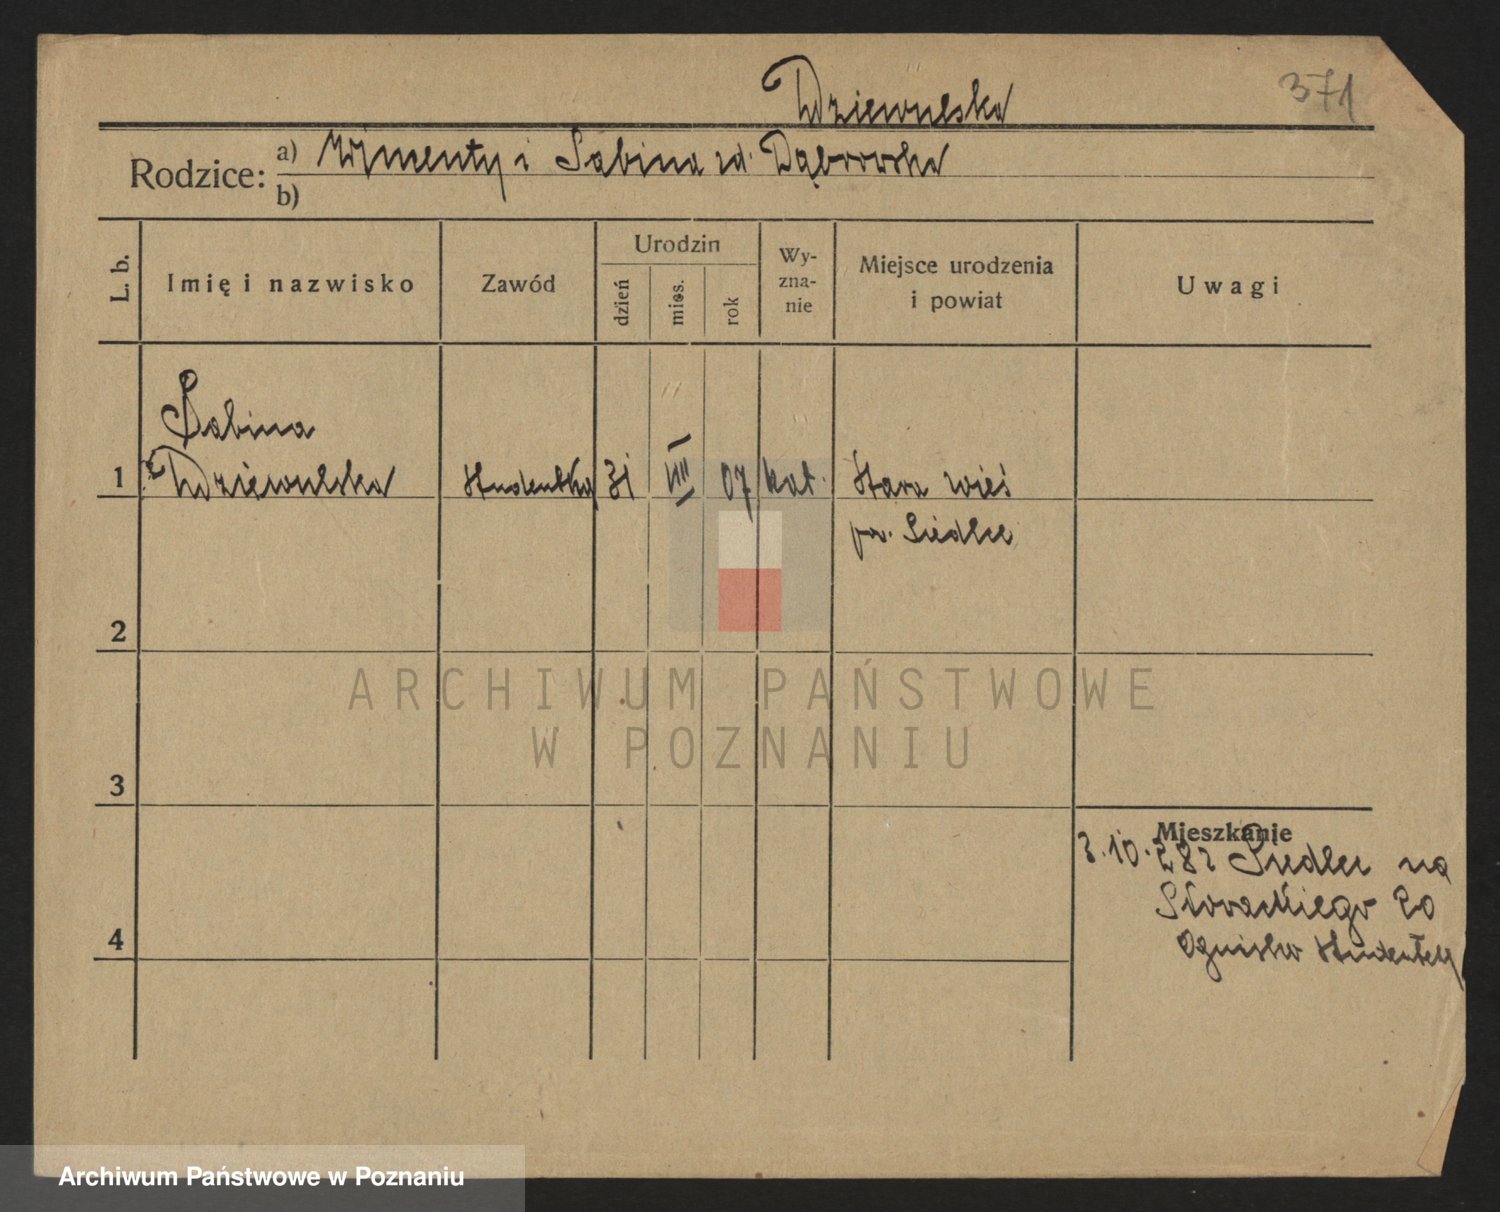 Dziewulska
371
Rodzice: a) Wincenty i Sabina zd. Dąbrowska
b)
L. b.
Imię i nazwisko
Zawód
Urodzin
dzień
mies.
rok
Wy-
zna-
nie
Miejsce urodzenia
i powiat
Uwagi
Sabina
1 Dziewulska studentka 31 VIII 07 kat. Stara wieś
pw. Siedlce
2
ARCHIWUM PAŃSTWOWE
W POZNANIU
3
Mieszkanie
3.10.28 z Siedlec na
Słowackiego 20
4
Ognisko studentek
Archiwum Państwowe w Poznaniu